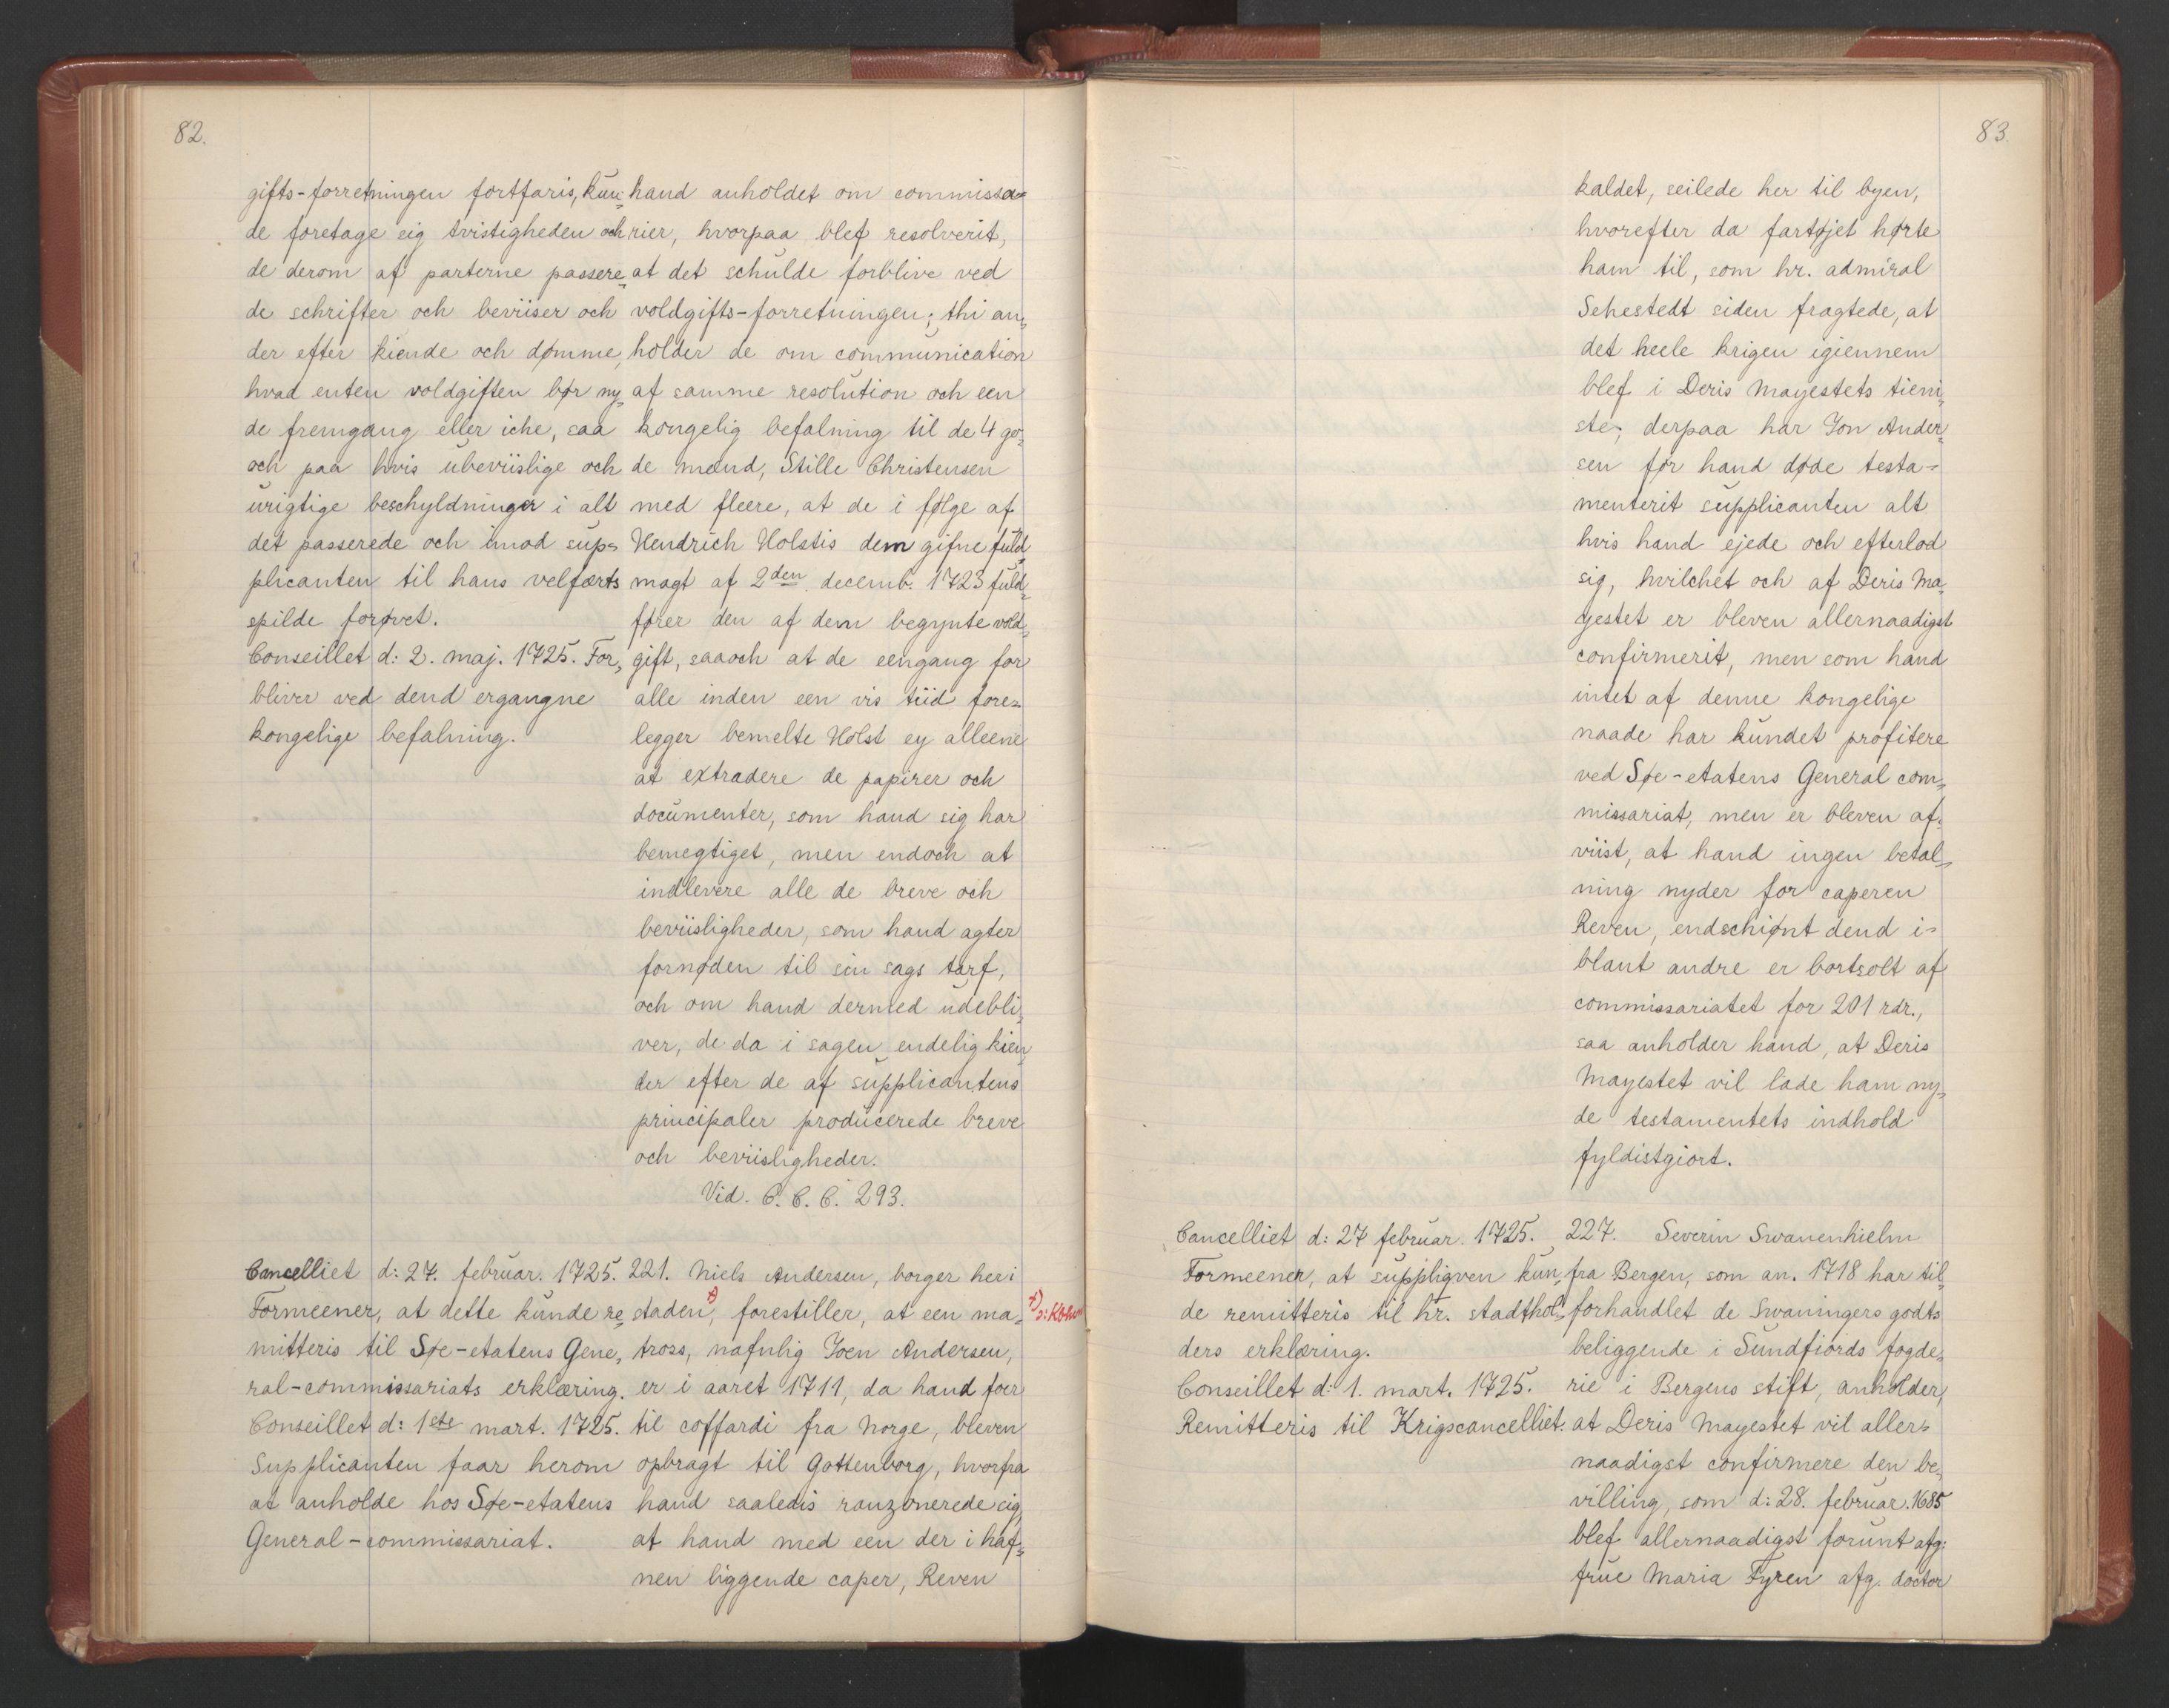 82.
gifts-forretningen fortfaris, kun-
de foretage sig tvistigheden och
de derom af parterne passere,
de schrifter och beviiser och
der efter kiende och dømme,
hvad enten voldgiften bør ny,
de fremgang eller iche, saa
och paa hvis ubeviislige och
urigtige beschyldninger i alt
det passerede och imod sup=
plicanten til hans velfærts
spilde forøvet.
Conseillet d: 2. maj. 1725. For,
bliver ved dend ergangne
kongelige befalning.
hand anholdet om commissa=
rier, hvorpaa blef resolverit,
at det schulde forblive ved
voldgifts-forretningen; thi an,
holder de om communication
af samme resolution och een
kongelig befalning til de 4 go,
de mænd, Stille Christensen
med fleere, at de i følge af
Hendrich Holstis dem gifne fuld,
magt af 2den decemb. 1723 fuld,
fører den af dem begynte vold,
gift, saaoch at de eengang for
alle inden een vis tiid fore=
legger bemelte Holst ey alleene
at extradere de papirer och
documenter, som hand sig har
bemegtiget, men endoch at
indlevere alle de breve och
beviisligheder, som hand agter
fornøden til sin sags tarf,
och om hand dermed udebli,
ver, de da i sagen endelig kien,
der efter de af supplicantens
principaler producerede breve
och beviisligheder.
Vid. C. C. C. 293.
Cancelliet d: 27. februar. 1725.
Formeener, at dette kunde re,
mitteris til Søe-etatens Gene,
ral-commissariats erklæring.
Conseillet d: 1ste mart. 1725.
Supplicanten faar herom
at anholde hos Søe-etatens
General-commissariat.
221. Niels Andersen, borger her i
staden x), forestiller, at een ma,
tross, nafnlig Joen Andersen,
er i aaret 1711, da hand foer
til coffardi fra Norge, bleven
opbragt til Gottenborg, hvorfra
hand saaledis ranzonerede sig,
at hand med een der i haf,
nen liggende caper, Reven
x)
ɔ: Kbhvn
83.
kaldet, seilede her til byen,
hvorefter da fartøjet hørte
ham til, som hr. admiral
Sehestedt siden fragtede, at
det heele krigen igiennem
blef i Deris Mayestets tieni,
ste; derpaa har Jon Ander,
sen før hand døde testa-
menterit supplicanten alt
hvis hand ejede och efterlod
sig, hvilchet och af Deris Ma,
yestet er bleven allernaadigst
confirmerit, men som hand
intet af denne kongelige
naade har kundet profitere
ved Søe-etatens General com,
missariat, men er bleven af,
viist, at hand ingen betal,
ning nyder for caperen
Reven, endschiønt dend i-
blant andre er bortsolt af
commissariatet for 201 rdr.,
saa anholder hand, at Deris
Mayestet vil lade ham ny,
de testamentets indhold
fyldistgiort.
Cancelliet d: 27 februar. 1725.
Formeener, at suppliqven kun,
de remitteris til hr. stadthol,
ders erklæring.
Conseillet d: 1. mart. 1725.
Remitteris til Krigscancelliet.
227. Severin Swanenhielm
fra Bergen, som an. 1718 har til,
forhandlet de Swaningers godts
beliggende i Sundfiords fogde,
rie i Bergens stift, anholder,
at Deris Mayestet vil aller=
naadigst confirmere den be,
villing, som d: 28. februar. 1685
blef allernaadigst forunt afg:
frue Maria Fyren afg. doctor